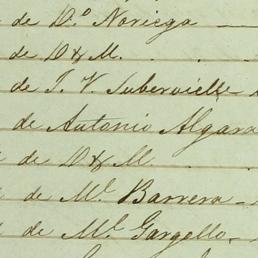 de D.º Noriega
de D&M.
de J. V. Subervielle
de Antonio Algara
de D&M.
de M.l Barrera
de M.l Gargollo